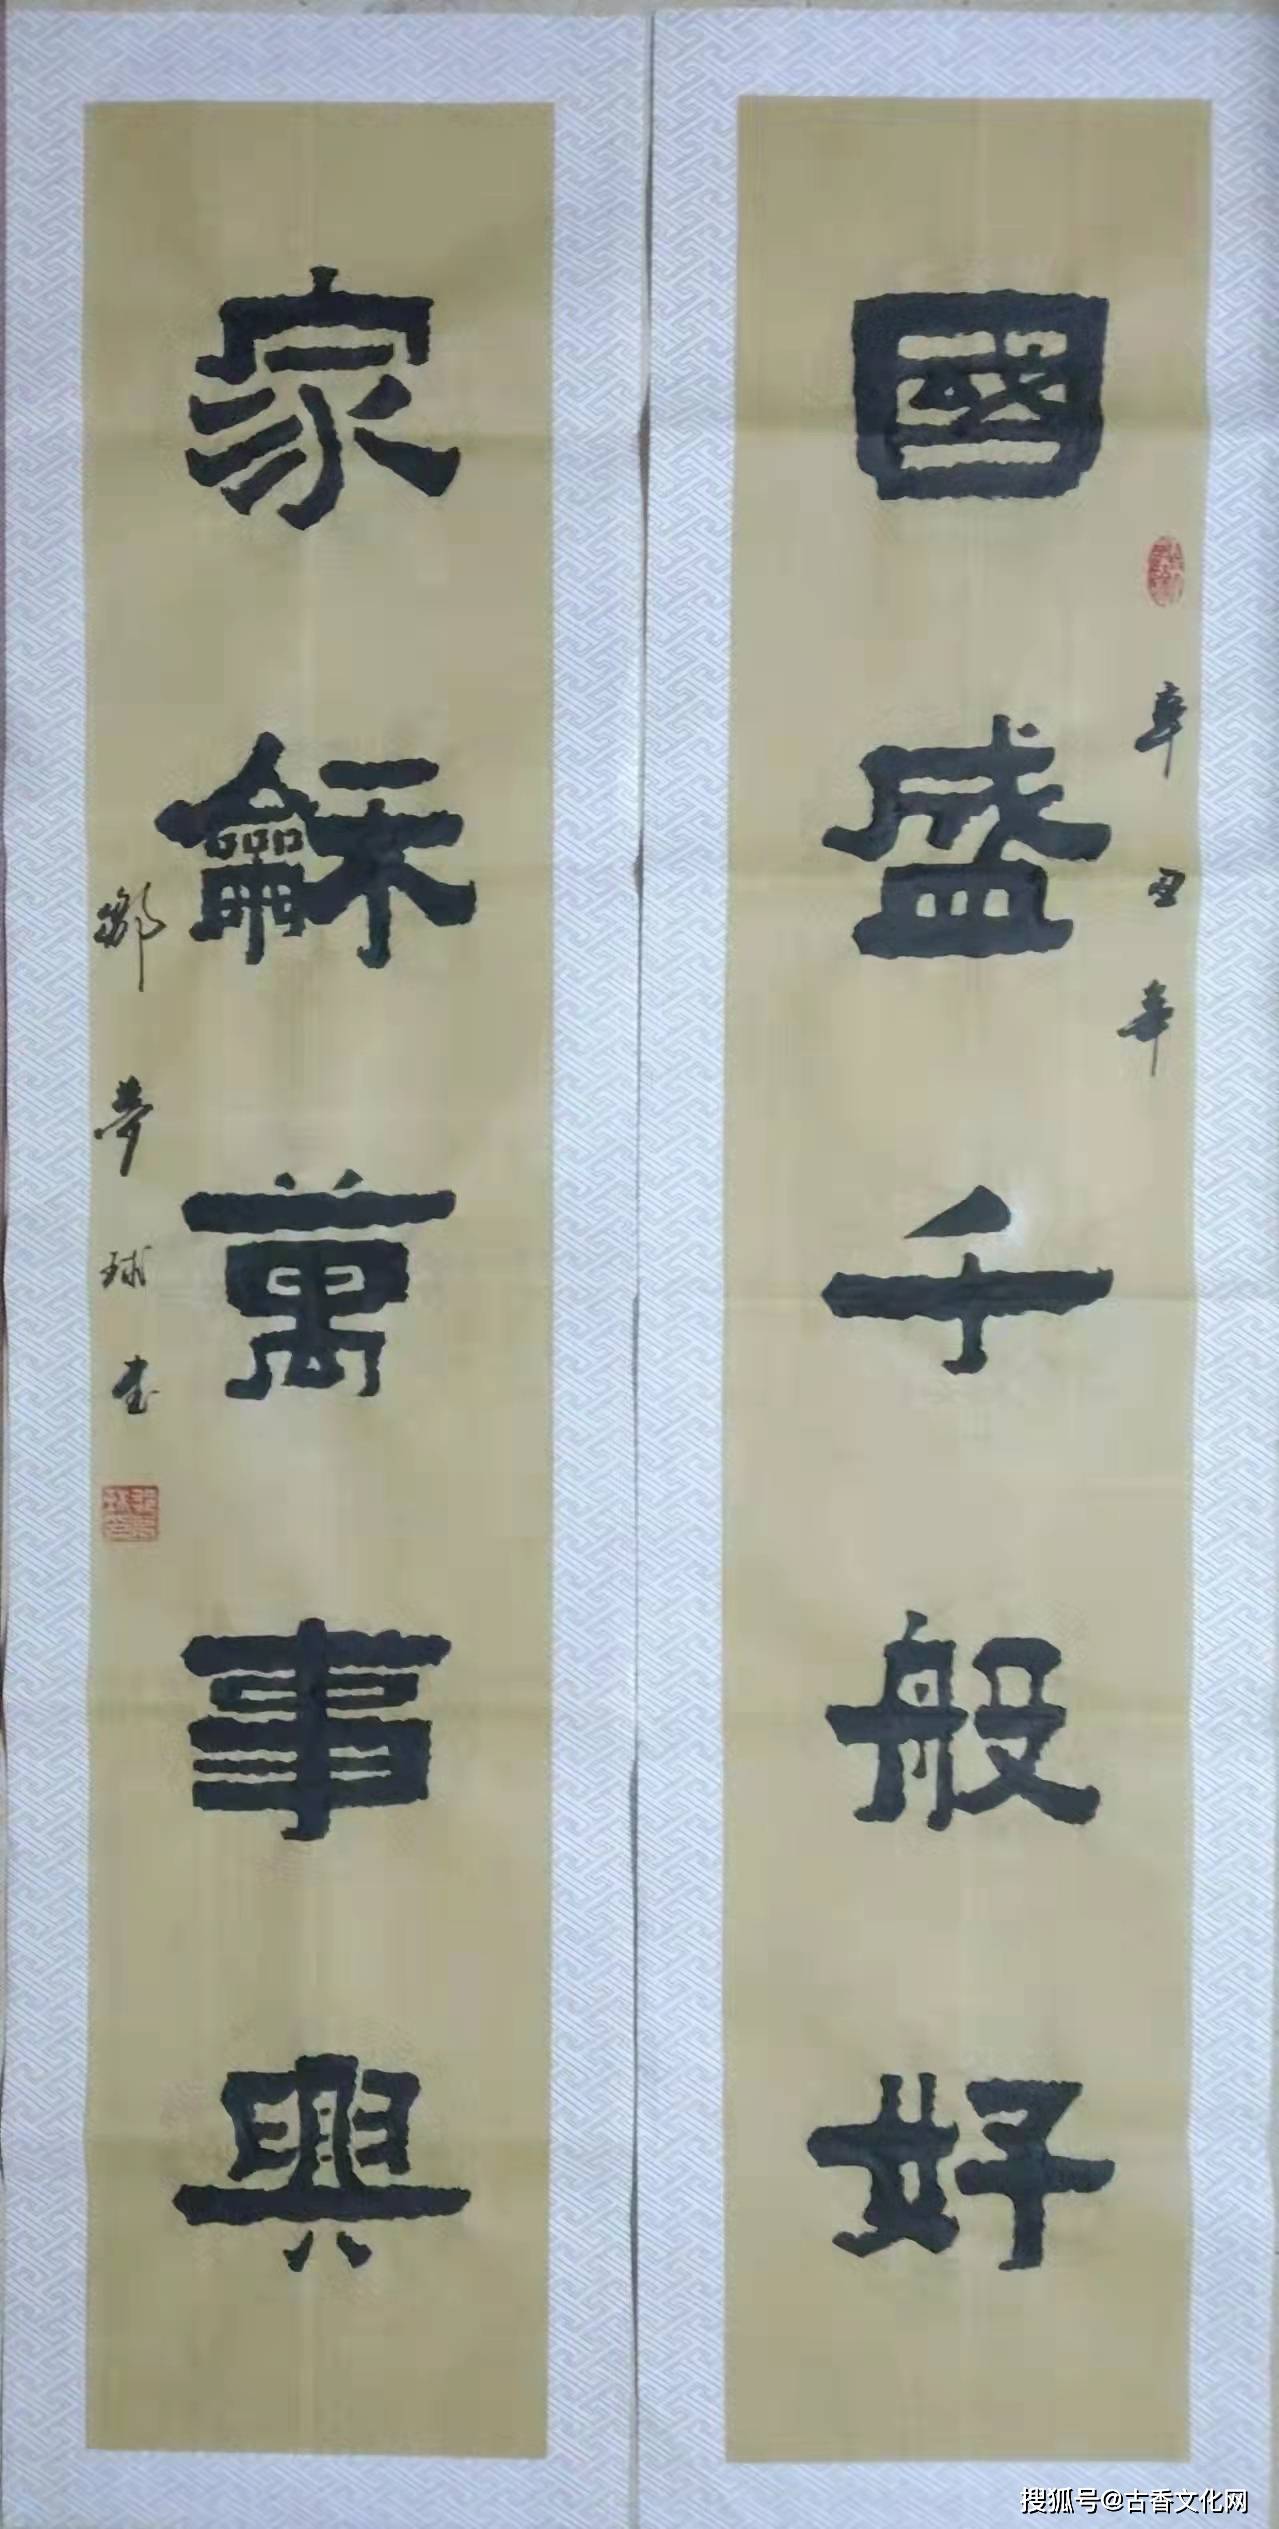 國盛千般好
辛丑年
家龢萬事興
鄒夢球書
搜狐号@古香文化网